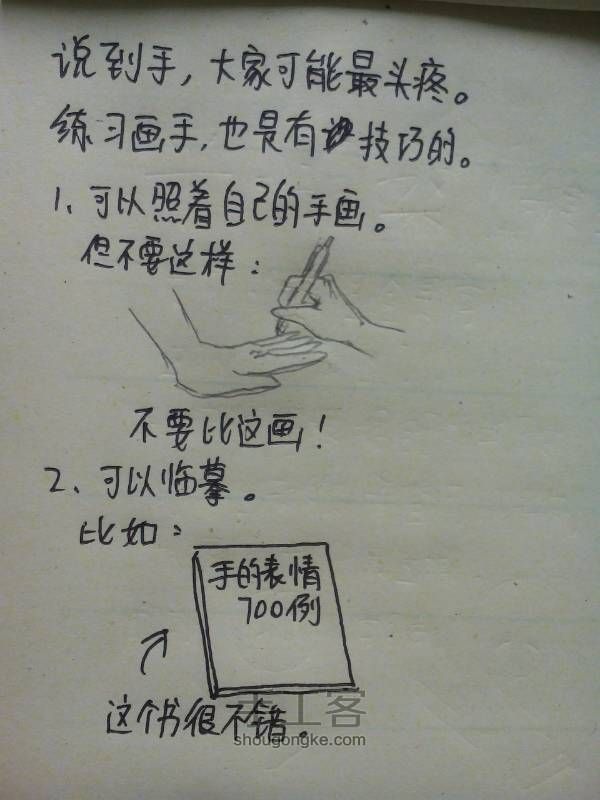 说到手，大家可能最头疼。
练习画手，也是有技巧的。
1、可以照着自己的手画。
但不要这样：
不要比这画！
2、可以临摹。
比如：
手的表情
700例
这个书很不错。
手工客
shougongke.com